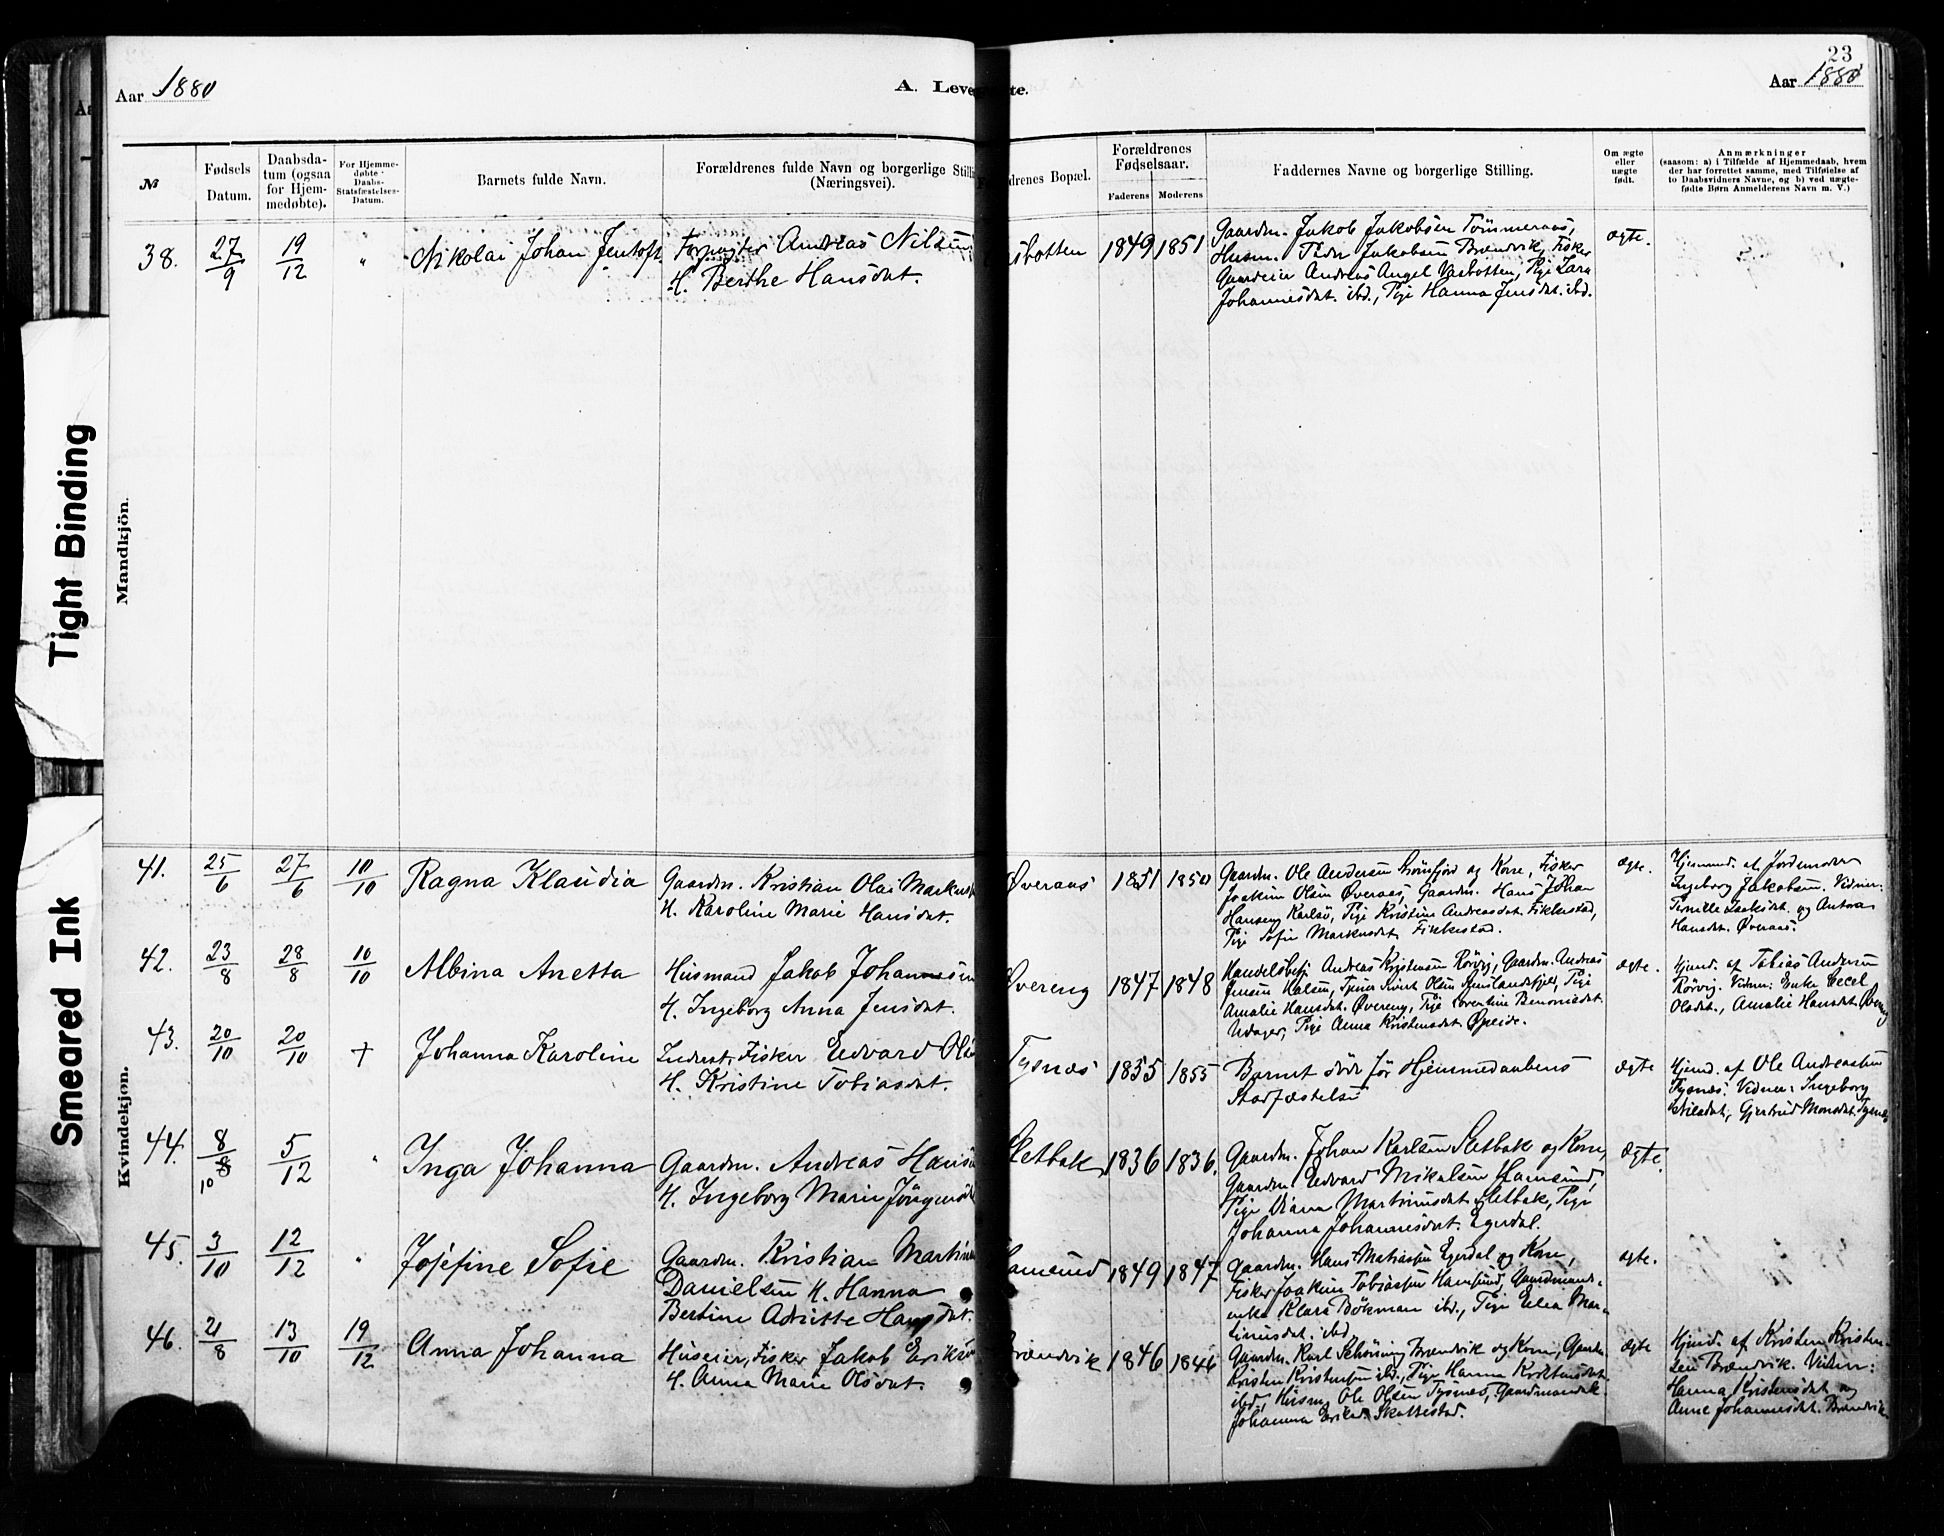 Aar 1880
A. Leve
te.
23
Aar 1880
№
Fødsels Datum.
Daabsda-
tum (ogsaa
for Hjem-
medøbte).
For Hjemme-
døbte -
Daabs-
Statsfæstelses-
Datum.
Barnets fulde Navn.
Forældrenes fulde Navn og borgerlige Still
(Næringsvei).
drenes Bopæl.
Forældrenes
Fødselsaar.
Faderens
Moderens
Faddernes Navne og borgerlige Stilling.
Om ægte
eller
uægte
født.
Anmærkninger
(saasom: a) i Tilfælde af Hjemmedaab, hvem
der har forrettet samme, med Tilføielse af
to Daabsvidners Navne, og b) ved uægte-
fødte Børn Anmelderens Navn m. V.)
Tight Binding
Smeared Ink
Mandkjön.
38. 27/9 19/12 " Nikolai Johan Jentoft
Forpagter Andreas Nilsen
H. Berthe Hansdat.
sbotten 1849 1851
Gaardm. Jakob Jakobsen Tømmeraas,
Husm. Peder Jakobsen Brændvik, Fisker
Gaardeier Andreas Angel Vasbotten, Pige Lara
Johannesdat. ibd., Pige Hanna Jensdat. ibd.
ægte.
Kvindekjøn.
41. 25/6 27/6 10/10 Ragna Klaudia
Gaardm. Kristian Olai Markus
H. Karoline Marie Hansdat.
Øveraas 1851 1850
Gaardm. Ole Andersen og Kone, Fisker
Joakim Olsen Øveraas, Gaardm. Hans Johan
Hansen Karlsø, Pige Kristine Andreasdat.
Pige Sofie Markusdat.
ægte.
Hjemmed. af Jordemoder
Ingeborg Jakobsen. Vidner:
Pernille Isaksdat. og Antona
Hansdt. Øveraas.
42. 23/8 28/8 10/10 Albina Anetta
Husmand Jakob Johannesen
H. Ingeborg Anna Jensdat.
Øvereng 1847 1848
Andreas Kristensen Rørvig, Gaardm. Andreas
Jensen Olsen Pige
Amalie Hansdat. Øvereng, Pige Lorentine Benoniedat.
Pige Anna Kristensdat.
ægte.
Hjemd. af Tobias Andersen
Rørvig. Vidner: Enke Cecel
Olsdt., Amalie Hansdt. Øvereng
43. 20/10 20/10 + Johanna Karoline
Inderst, Fisker Edvard Ols
H. Kristine Tobiasdat.
Tysnæs 1855 1855
Barnet døde før Hjemmedaabens
Stadfæstelse
ægte
Hjemd. af Ole Andreassen
Tysnæs. Vidner: Ingeborg
Nilsdat., Gjertrud Monsdat. Tysnæs
44. 8/10 5/12 " Inga Johanna
Gaardm. Andreas Hans
H. Ingeborg Marie Jørgensd
Sletbak 1836 1836.
Gaardm. Johan Karlsen Sletbak og Kone,
Gaardm. Edvard Mikalsen Hamsund,
Pige Diana Martinusdat. Sletbak, Pige
Johanna Johannesdat. Egerdal.
Ægte.
45. 3/10 12/12 " Joséfine Sofie
Gaardm. Kristian Martin
Danielsen H. Hanna
Bertine Adritte Hansdat.
amsund 1849 1847
Gaardm. Hans Matiassen Egerdal og Kone,
Fisker Joakim Tobiassen Hamsund, Gaardmands-
enke Klara Bökman ibd., Pige Elea Mar-
tinusdat. ibd.
ægte.
46. 21/8 13/10 19/12 Anna Johanna
Huseier, Fisker Jakob Eriks
H. Anna Marie Olsdat.
Brændvik 1846 1846
Gaardm. Karl Schöning Brændvik og Kone, Gaardm.
Kristen Kristensen ibd., Pige Hanna Kristensdat.
ibd., Husm. Ole Olsen Tysnæs, Gaardmandsk.
Johanna Eriksd. Skottestad.
ægte
Hjemd. af Kristen Kristen-
sen Brændvik. Vidner:
Hanna Kristensdat. og
Anne Johannesdat. Brændvik